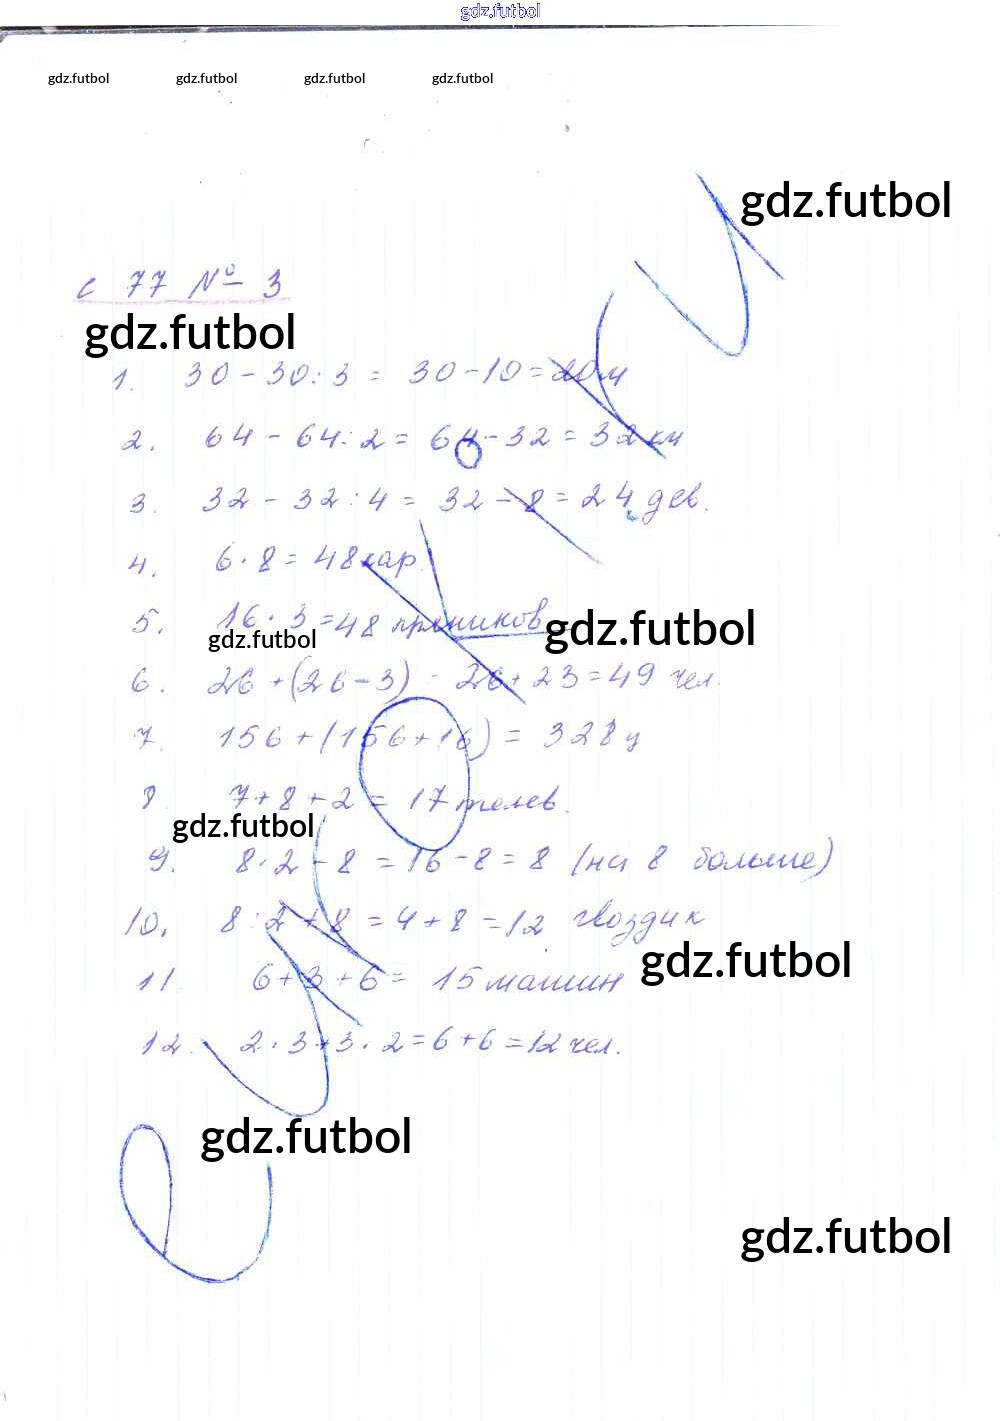 gdz.futbol
gdz.futbol gdz.futbol gdz.futbol gdz.futbol
gdz.futbol
с 77 № 3
gdz.futbol
1. 30 - 30 : 3 = 30 - 10 = 20 м
2. 64 - 64 : 2 = 64 - 32 = 32 км
3. 32 - 32 : 4 = 32 - 8 = 24 дев.
4. 6 · 8 = 48 кар.
5. 16 · 3 = 48 пряников
gdz.futbol gdz.futbol
6. 26 + (26 - 3) = 26 + 23 = 49 чел.
7. 156 + (156 + 16) = 328 ц
8. 7 + 8 + 2 = 17 телев.
gdz.futbol
9. 8 · 2 - 8 = 16 - 8 = 8 (на 8 больше)
10. 8 : 2 + 8 = 4 + 8 = 12 гвоздик
gdz.futbol
11. 6 + 3 + 6 = 15 машин
12. 2 · 3 + 3 · 2 = 6 + 6 = 12 чел.
gdz.futbol
gdz.futbol